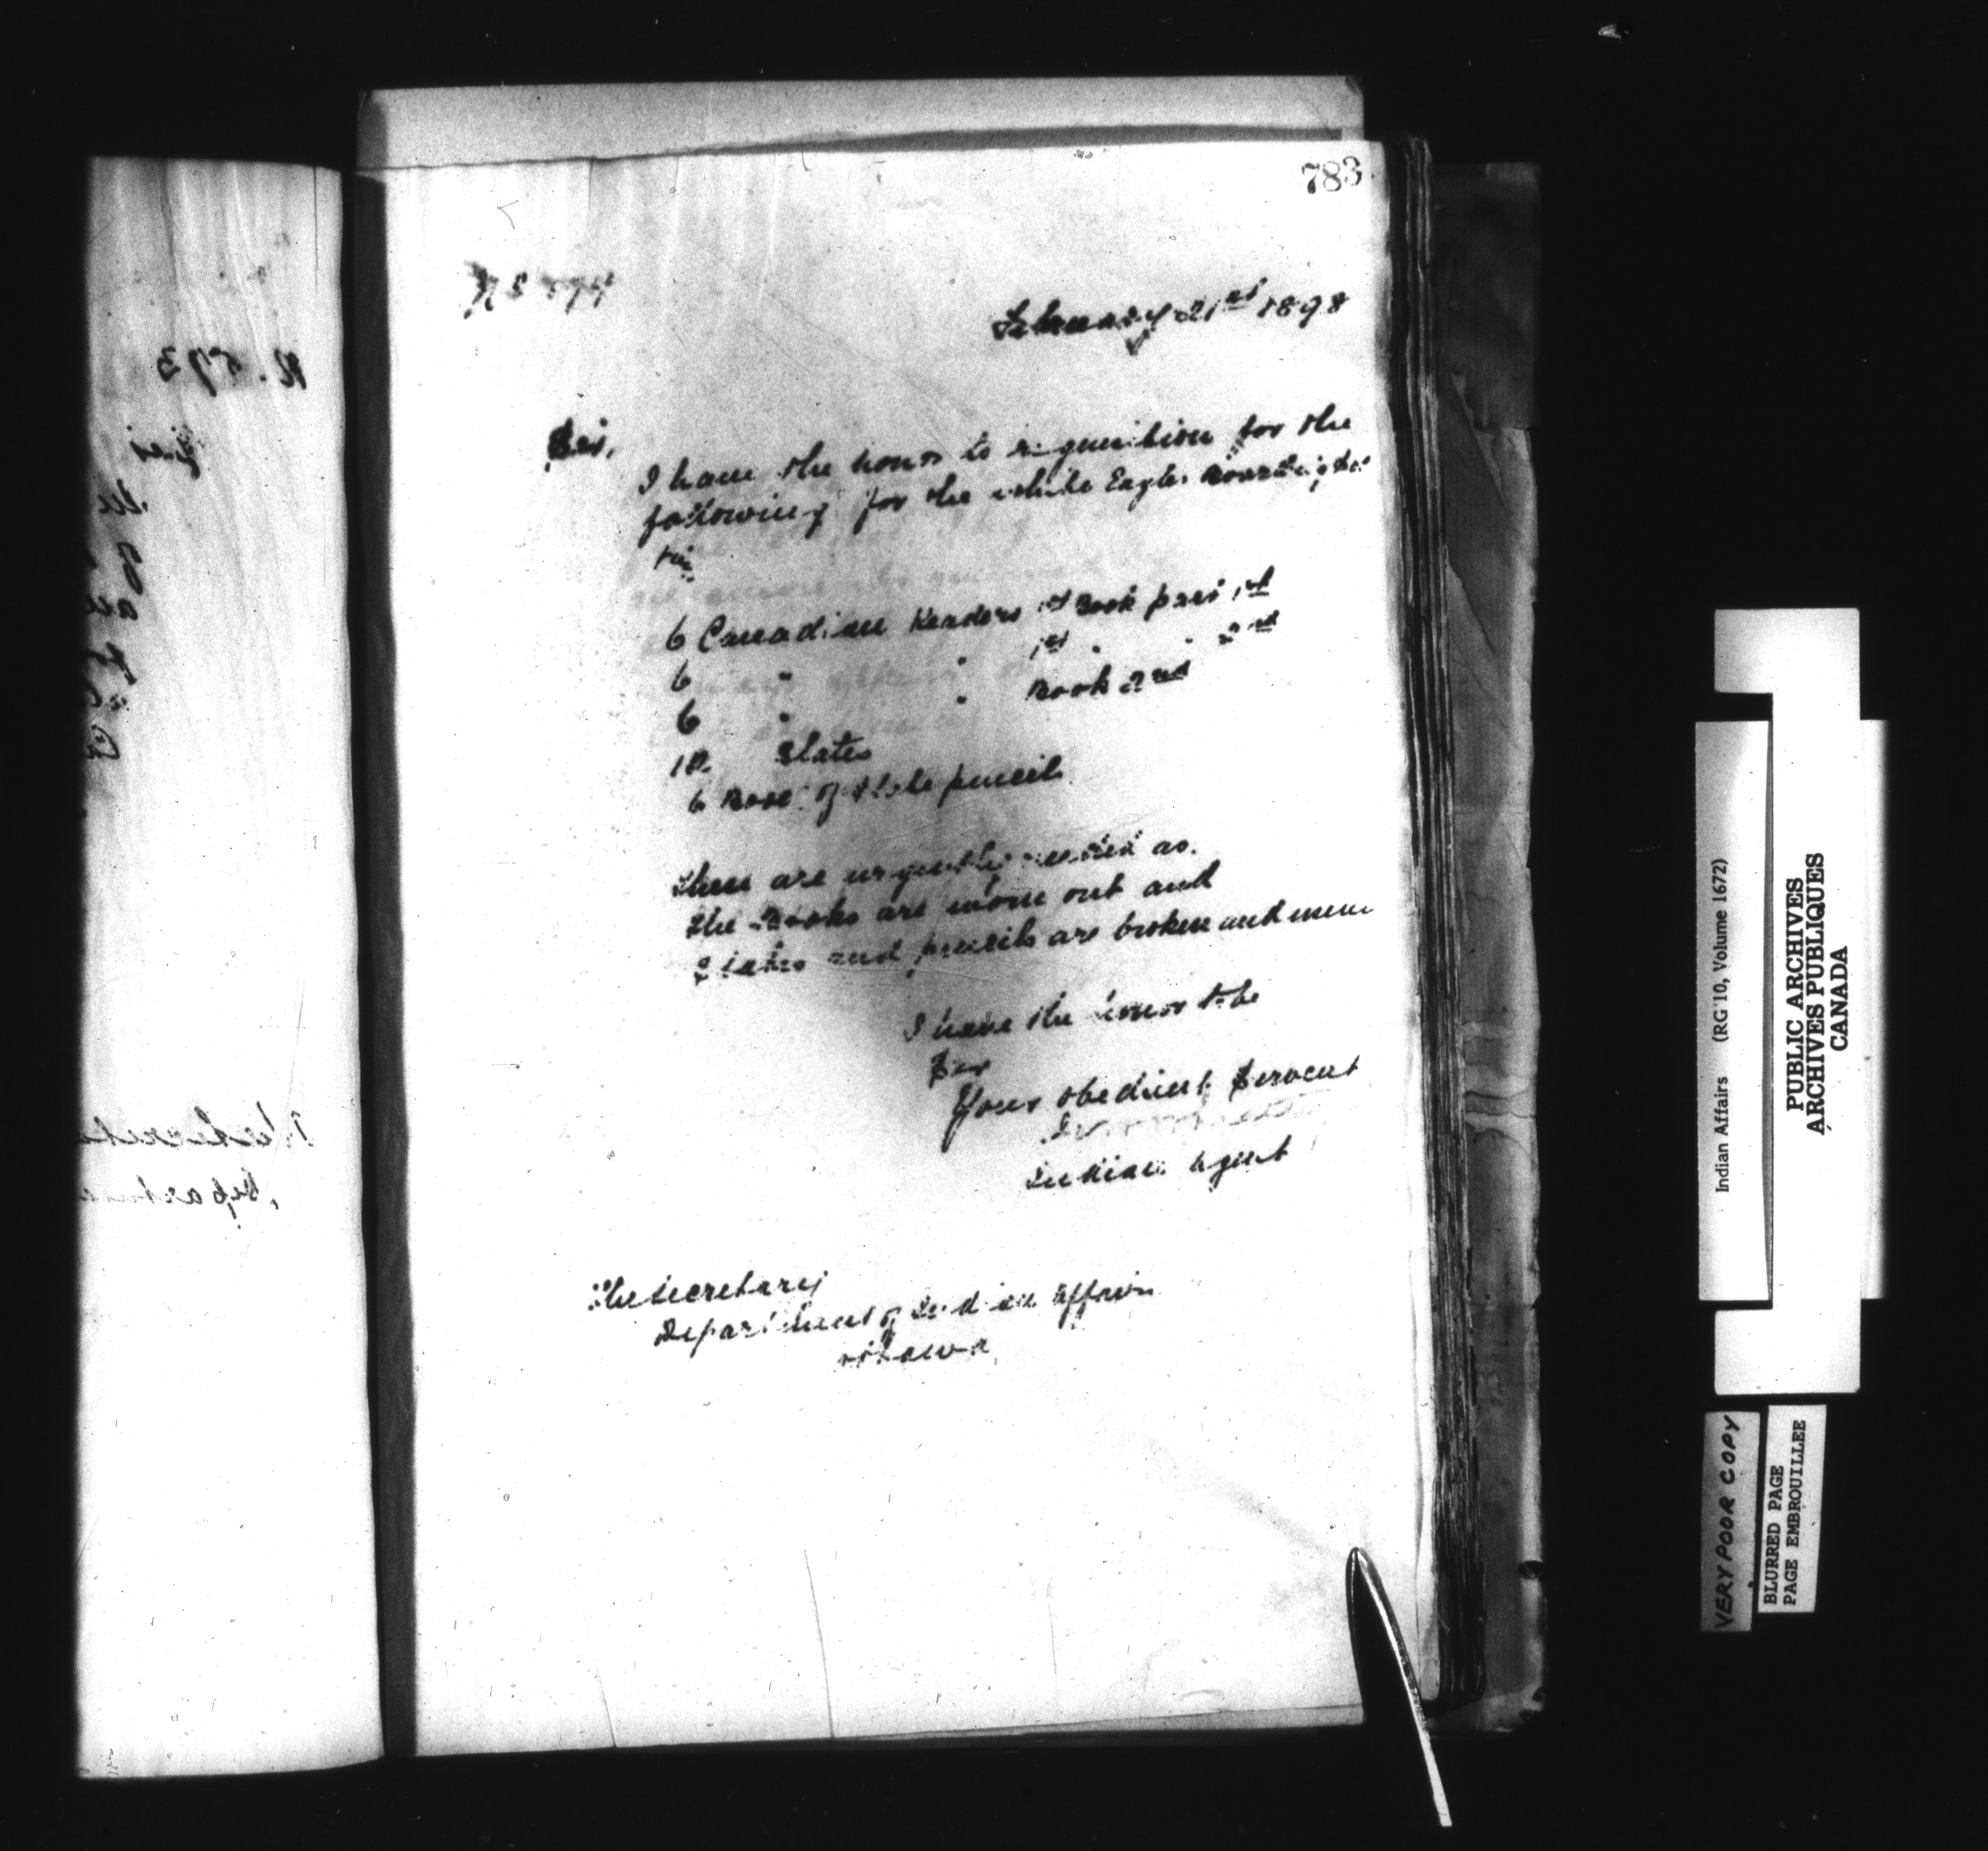 783
February 21st 1898
Sir,
I have the honor to requisition for the
following for the white Eagle Boarding
viz
6 Canadian Readers 1st Book part 1st
6 " " 1st " " 2nd
6 " " Book 2nd
Slates
6 Boxes of slate pencils
These are urgently needed as
the Books are worn out and
Slates and pencils are broken and
I have the honor to be
Sir
Your obedient Servant
Indian Agent
The Secretary
Department of Indian Affairs
Ottawa
Indian Affairs (RG 10, Volume 1672)
PUBLIC ARCHIVES
ARCHIVES PUBLIQUES
CANADA
VERY POOR COPY
BLURRED PAGE
PAGE EMBROUILLEE